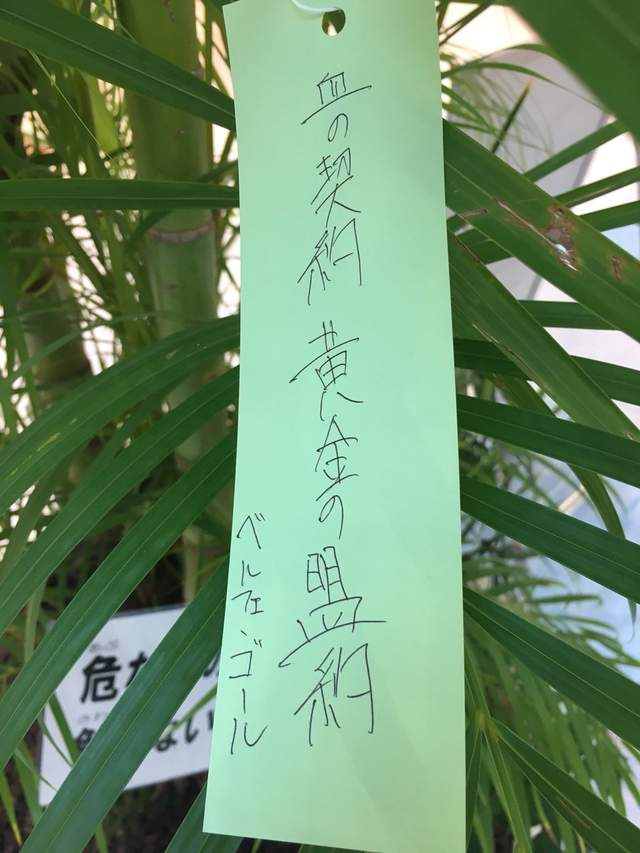 血の契約 黄金の盟約
ベルフェ・ゴール
危
ない